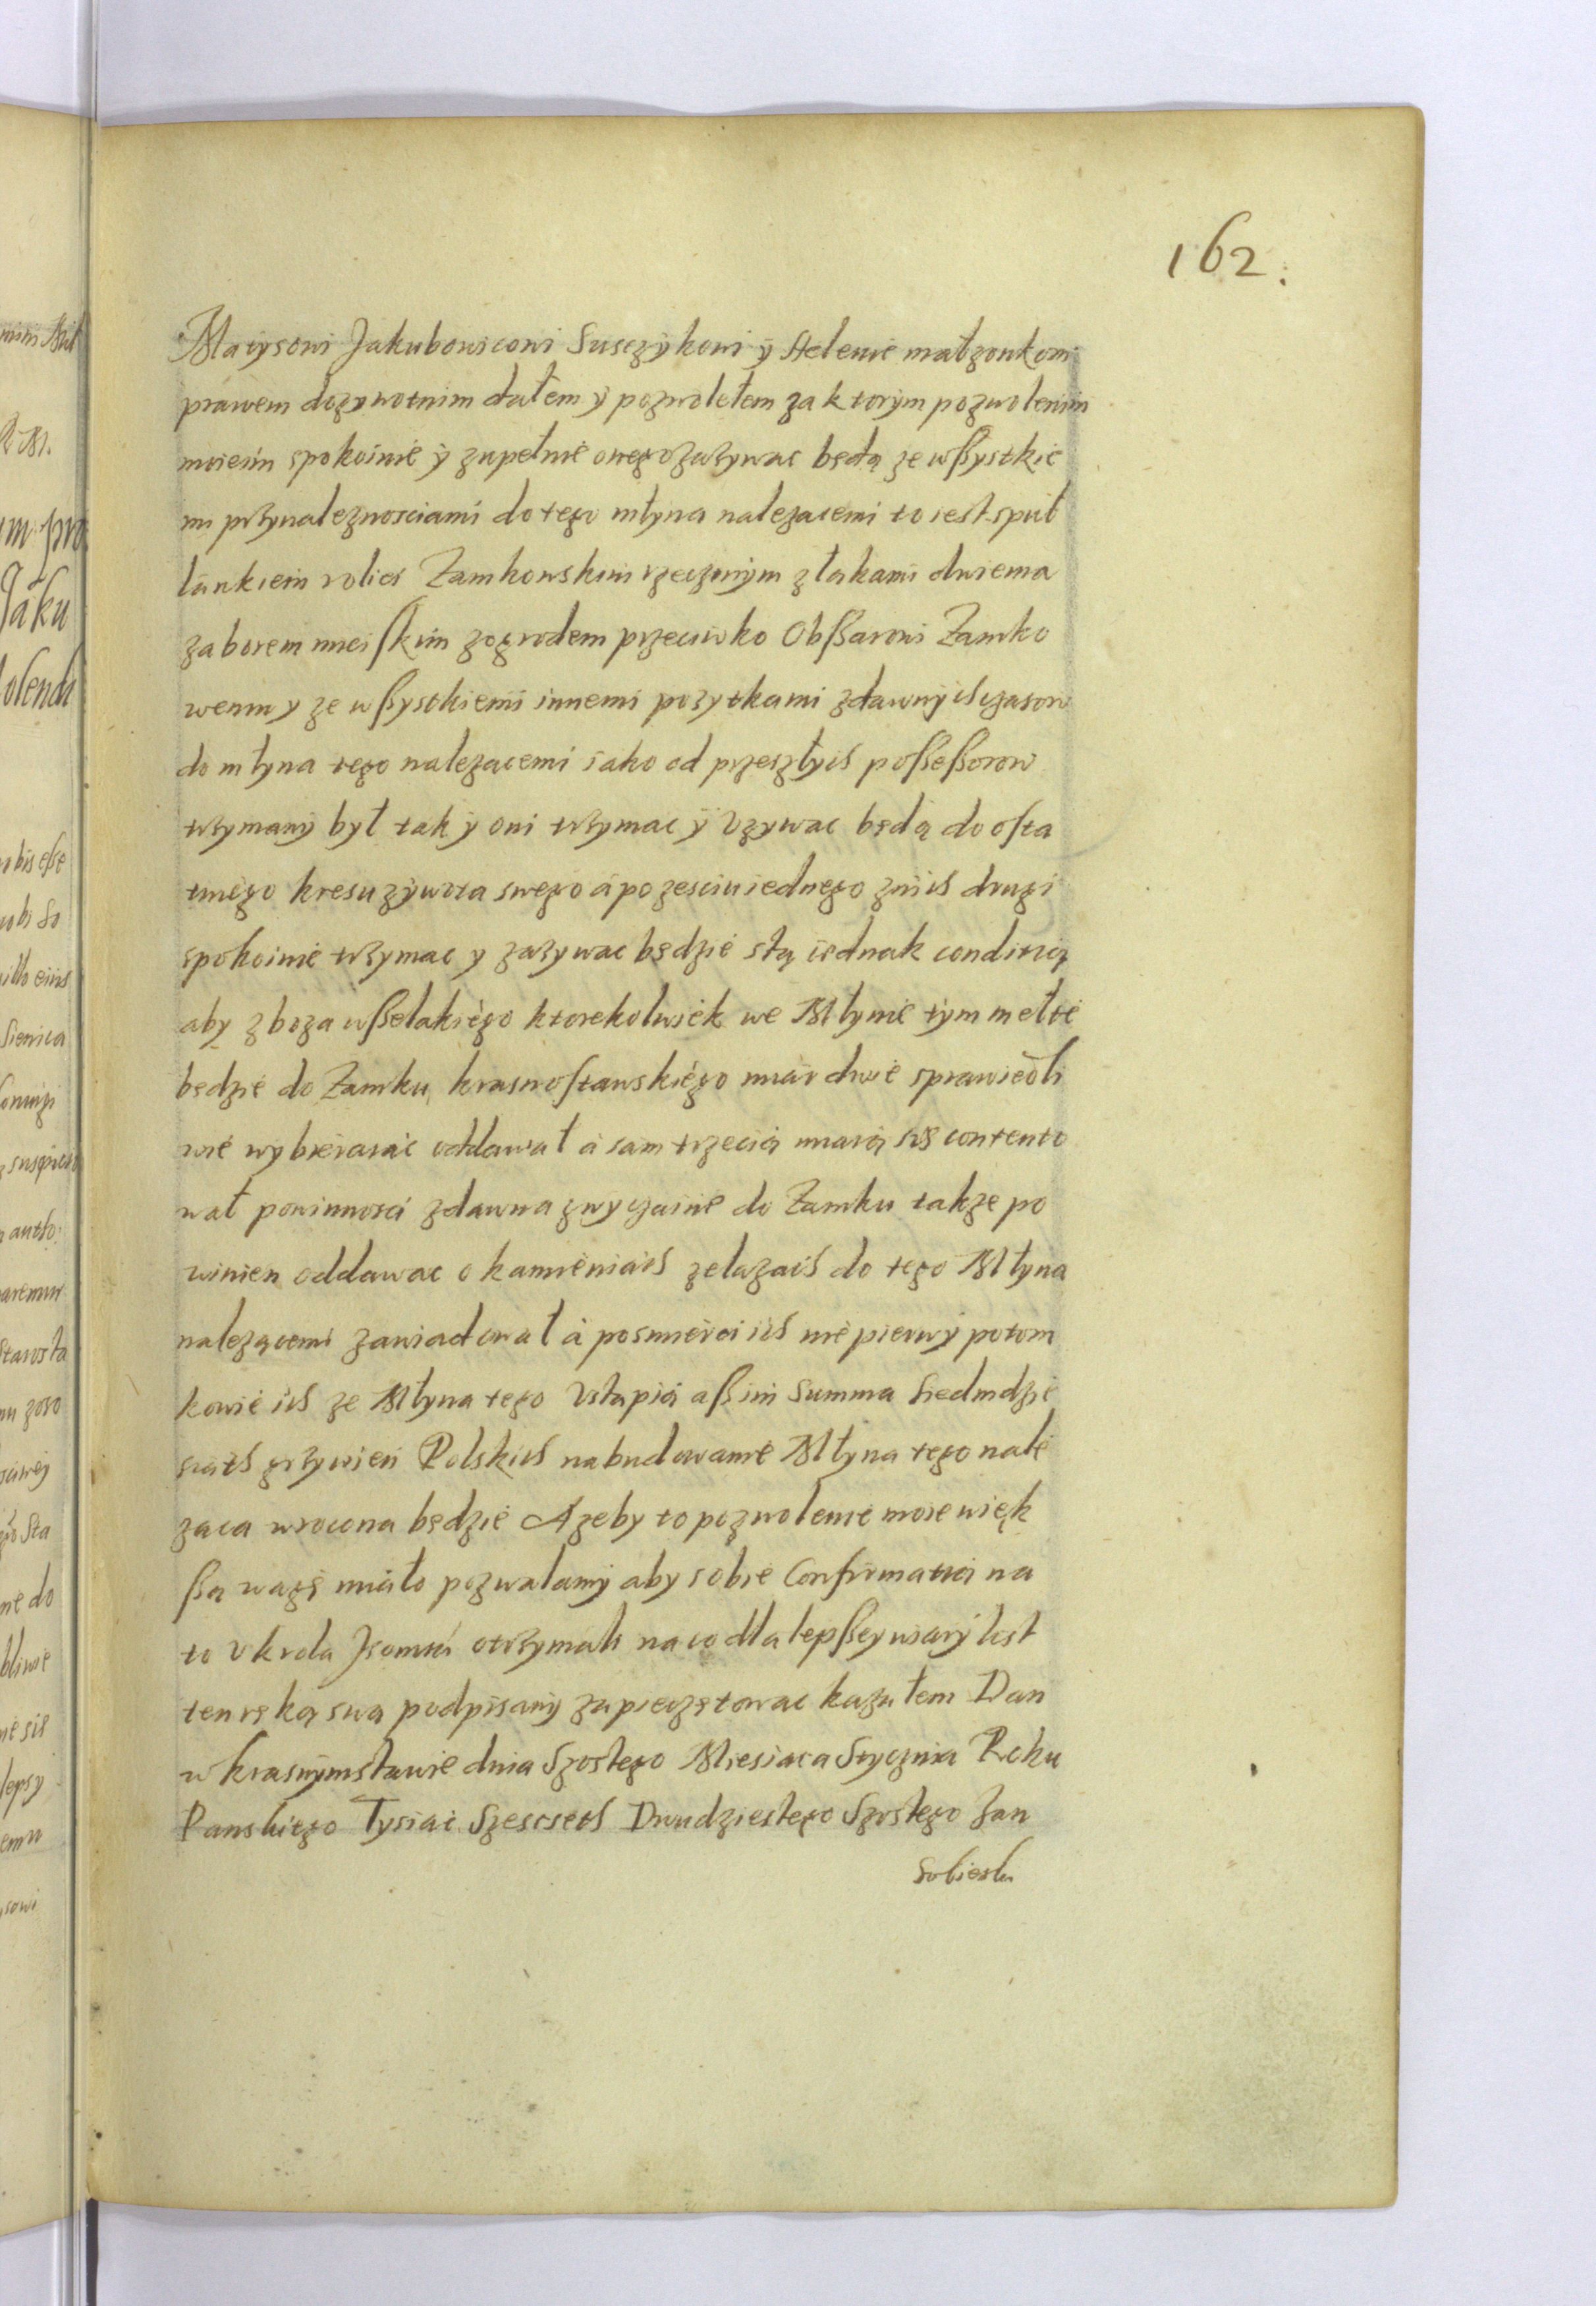 162.
Matysowi Jakubowicowi Susczykowi ÿ Helenie małzonkom
prawem dozywotnim dałem ÿ pozwolełem za ktorÿm pozwolenim
moieim spokoinie ÿ zupełnie onego zazÿwac będą ze wßystkie
mi przynaleznosciami do tego młyna nalezacemi to iest spuł
łankiem rolieÿ Zamkowskim rzeczonÿm z łąkami dwiema
za borem mieiskim zogrodem przeciwko Obßarowi Zamko
wemu y ze wßystkiemi innemi pozytkami zdawnÿch czasow
do młyna tego nalezacemi iako od przeszłÿch poßeßorow
trzymanÿ był tak ÿ oni trzymac ÿ Vzÿwac będą do osta
tniego kresu zÿwota swego á po zesciu iednego znich drugi
spokoinie trzymac y zazywac będzie stą iednak conditią
aby zboza wßelakiego ktorekolwiek we Młynie tÿm mełte
będzie do Zamku krasnostawskiego miar dwie sprawiedli
wie wybieraiąc oddawał á sam trzecią miarą się contento
wał powinnosci zdawna zwyczaine do Zamku takze po
winien oddawac o kamieniach zelazach do tego Młyna
nalezącemi zawiadował á po smierci ich nie pierwÿ potom
kowie ich ze Młyna tego Vstąpią aß im Summa Siedmdzie
siąth grzywien Polskich na budowanie Młyna tego nale
zaca wrocona będzie Azeby to pozwolenie moie więk
ßą wagę miáło pozwalamÿ aby sobie Confirmatią na
to V krola Jeomści otrzÿmali na co dla lepßey wiarÿ list
ten ręką swą podpisanÿ zapieczętowac kazałem Dan
w krasnÿmstawie dnia Szostego Miesiaca Stycznia Roku
Panskiego Tysiąc Szescseth Dwudziestego Szostego Jan
Sobieski